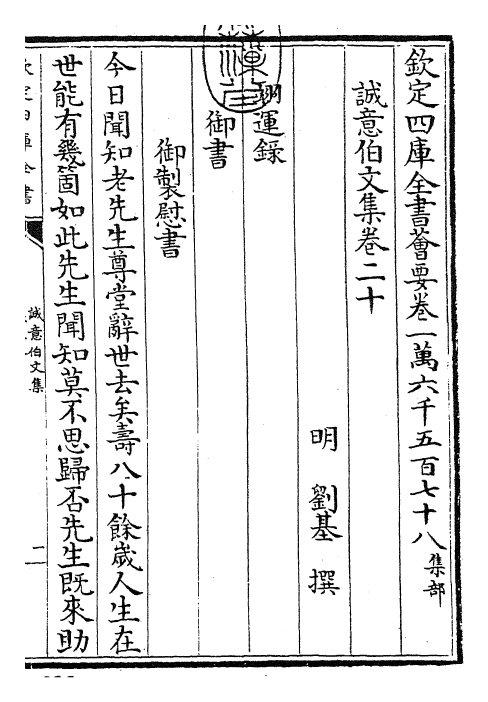 欽定四庫全書薈要卷一萬六千五百七十八 集部
誠意伯文集卷二十
明 劉基 撰
翊運錄
御書
御製慰書
今日聞知老先生尊堂辭世去矣壽八十餘歲人生在
世能有幾箇如此先生聞知莫不思歸否先生既來助
誠意伯文集
二